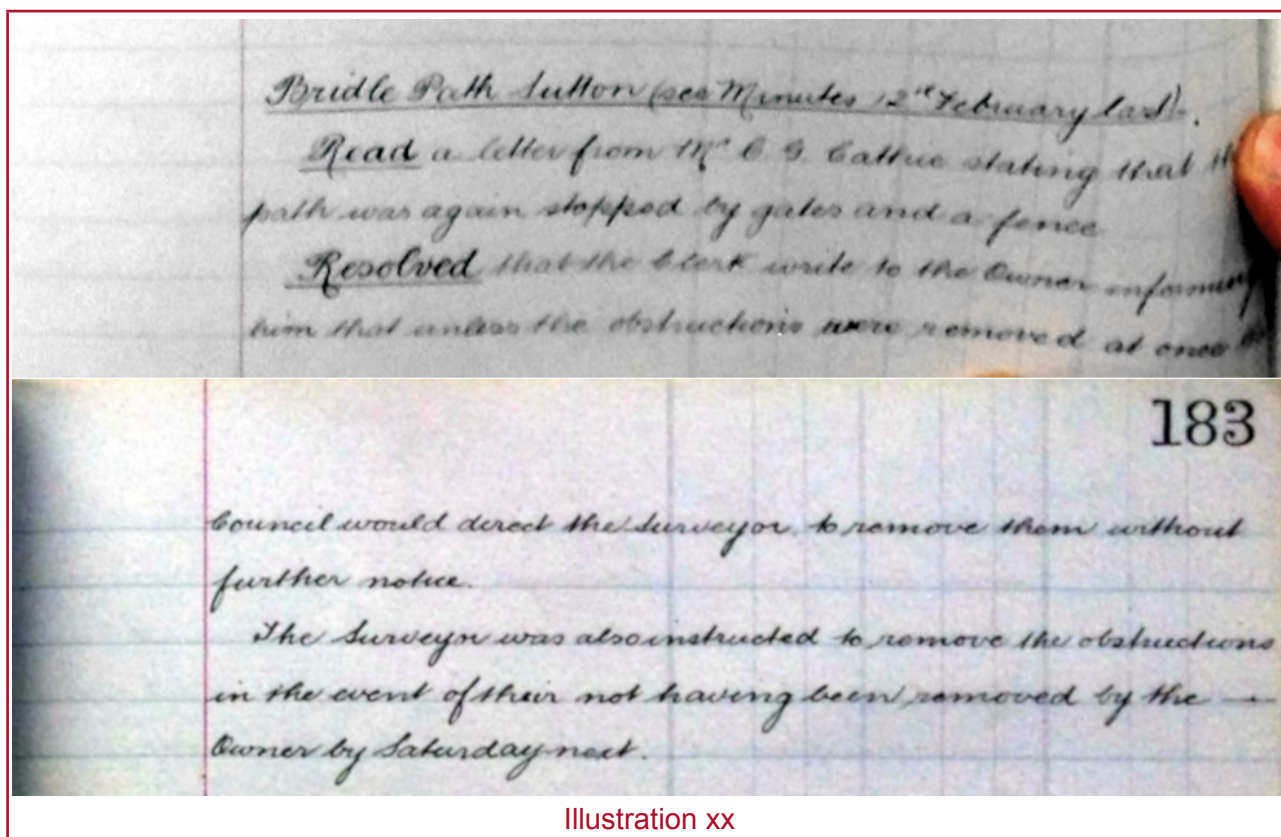 Bridle Path Sutton (see Minutes 12th February last).
Read a letter from Mr C. G. Cattrie stating that th
path was again stopped by gates and a fence
Resolved that the Clerk write to the Owner informing
him that unless the obstructions were removed at once
183
Council would direct the Surveyor to remove them without
further notice.
The Surveyor was also instructed to remove the obstructions
in the event of their not having been removed by the —
Owner by Saturday next.
Illustration xx